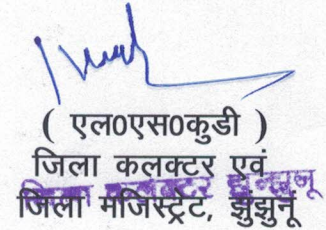 ( एल0एस0कुडी )
जिला कलक्टर एवं
जिला कलक्टर झुन्झुनू
जिला मजिस्ट्रेट, झुझुनूं